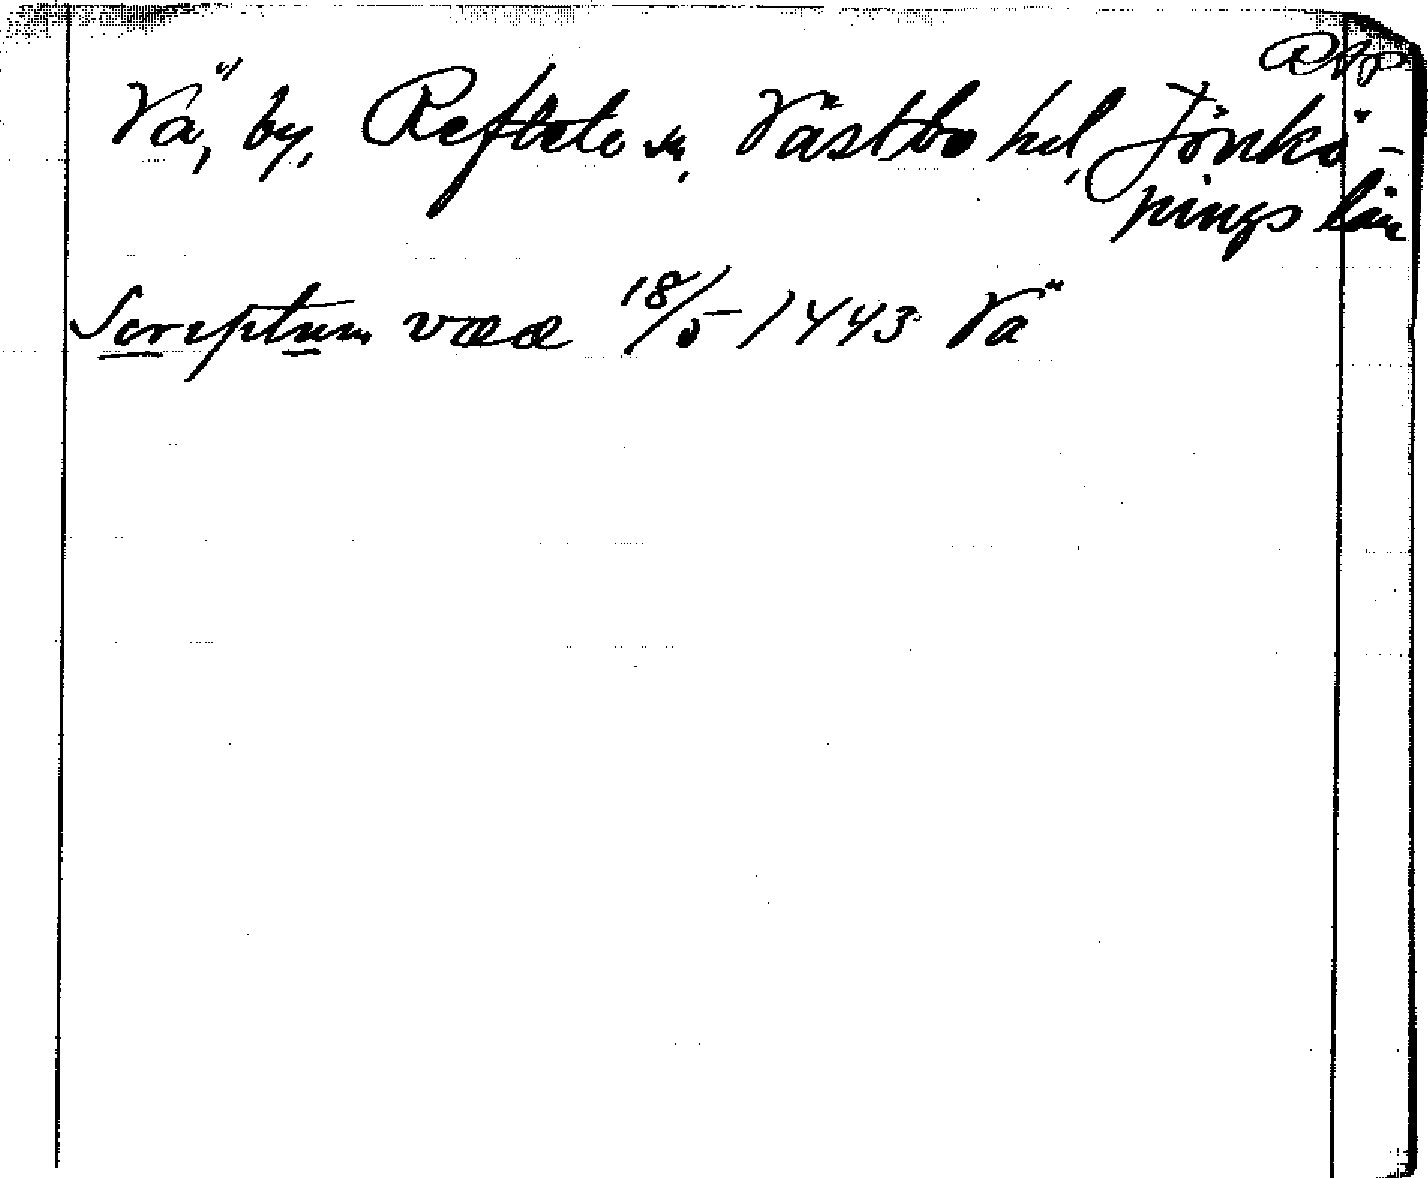 Vä, by, Reftele sn, Västbo hd, Jönkö-
pings län
Scriptum vææ 18/5 1443 Vä